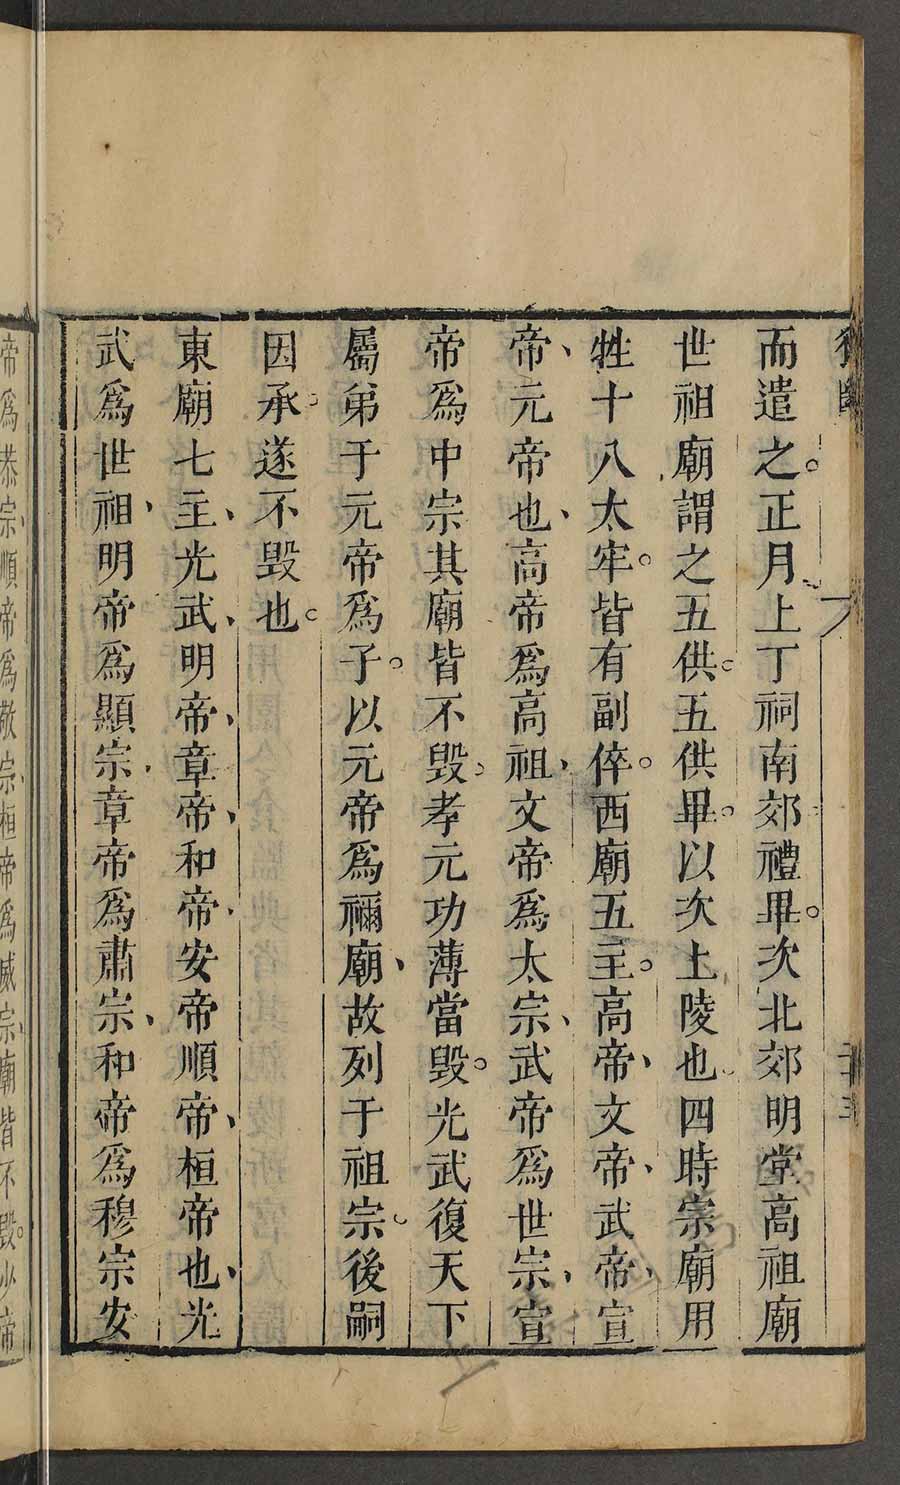 而遣之。正月上丁祠南郊禮畢。次北郊明堂高祖廟
世祖廟謂之五供。五供畢。以次上陵也四時宗廟用
牲十八太牢。皆有副倅。西廟五主。高帝、文帝、武帝、宣
帝、元帝也、高帝爲高祖、文帝爲太宗、武帝爲世宗、宣
帝爲中宗其廟皆不毀。孝元功薄當毀。光武復天下
屬弟于元帝爲子。以元帝爲禰廟、故列于祖宗。後嗣
因承。遂不毀也。
東廟七主、光武、明帝、章帝、和帝、安帝順帝、桓帝也、光
武爲世祖、明帝爲顯宗、章帝爲肅宗、和帝爲穆宗安
帝爲恭宗、順帝爲敬宗、桓帝爲威宗、廟皆不毀。少帝